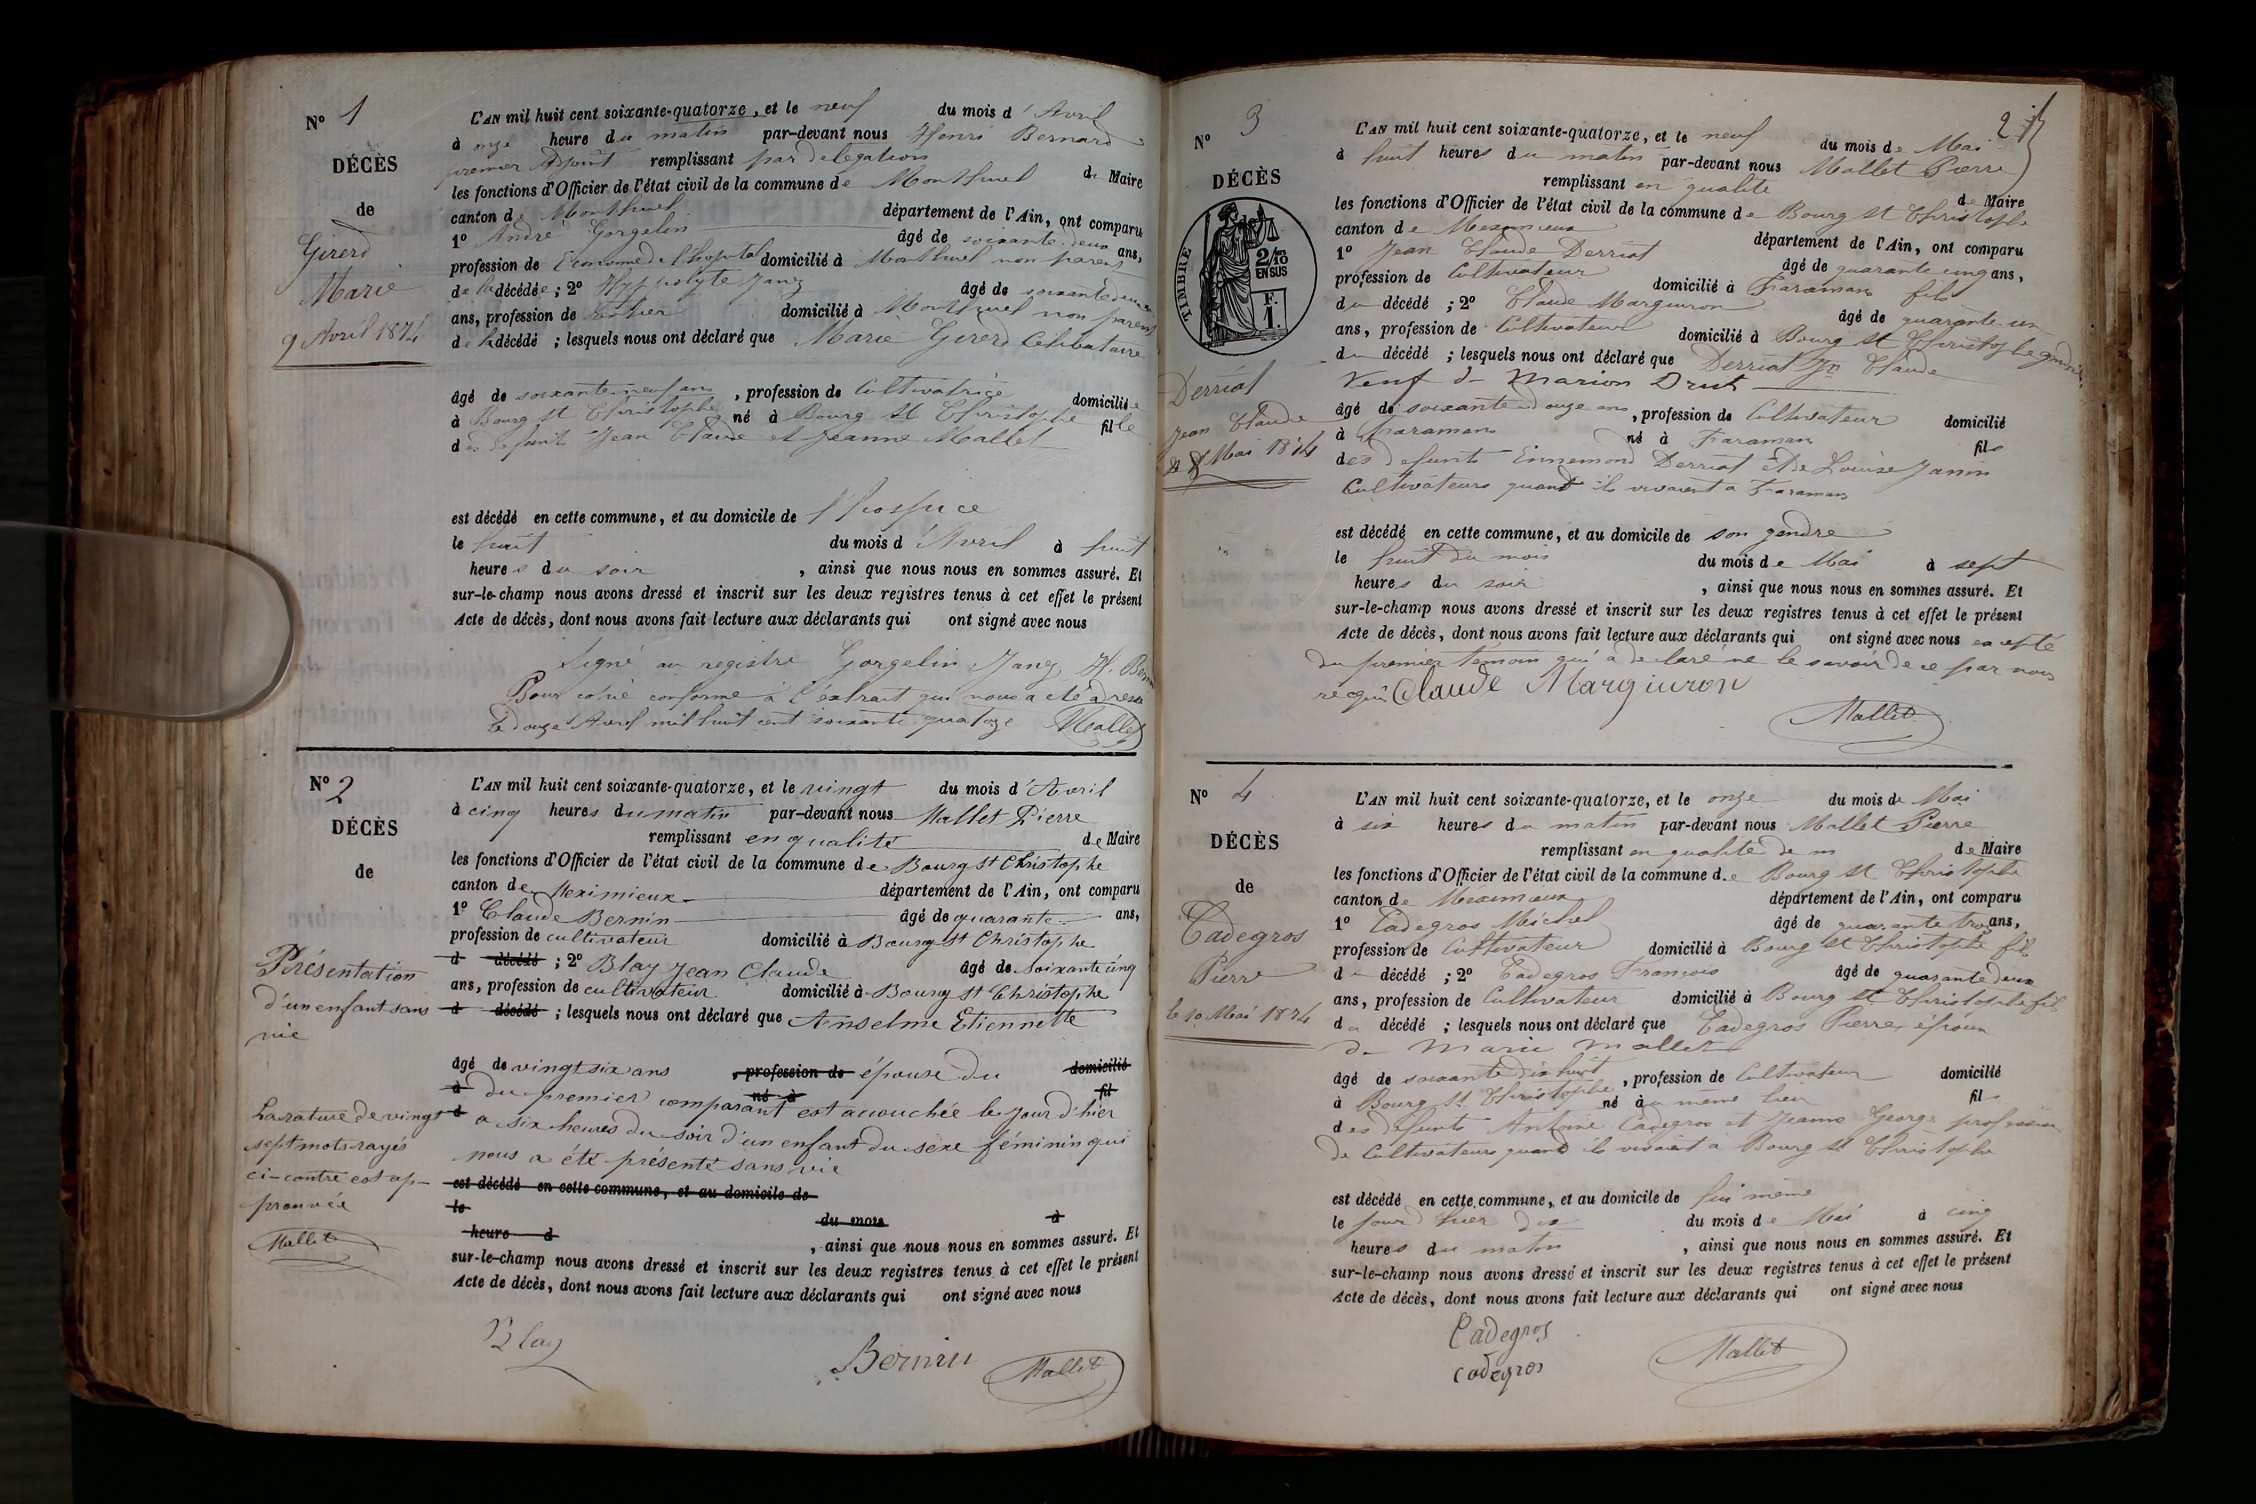 Nº 1
DÉCÈS
de
Girerd
Marie
9 Avril 1874
L'AN mil huit cent soixante-quatorze, et le neuf du mois d'Avril
à onze heure du matin par-devant nous Henri Bernard
premier Adjoint remplissant par delegation de Maire
les fonctions d'Officier de l'état civil de la commune de Montluel
canton de Montluel département de l'Ain, ont comparu
1º André Gorgelin âgé de soixante deux ans,
profession de Econome de l'hopital domicilié à Montluel non parent
de la décédée ; 2º Hyppolyte Jang âgé de soixante deux
ans, profession de rentier domicilié à Montluel non parent
de la décédé ; lesquels nous ont déclaré que Marie Girerd Célibataire
âgé de soixante neuf ans, profession de Cultivatrice domiciliée
à Bourg St Christophe né à Bourg St Christophe fille
des defunts Jean Claude et Jeanne Mallet
est décédé en cette commune, et au domicile de l'Hospice
le huit du mois d'Avril à huit
heures du soir, ainsi que nous nous en sommes assuré. Et
sur-le-champ nous avons dressé et inscrit sur les deux registres tenus à cet effet le présent
Acte de décès, dont nous avons fait lecture aux déclarants qui ont signé avec nous
Signé au registre Gorgelin Jang H. Bernard
Pour copie conforme à l'extrait qui nous a été adressé
le douze Avril mil huit cent soixante quatorze Mallet
Nº 2
DÉCÈS
de
Présentation
d'un enfant sans
vie
La rature de vingt
sept mots rayés
ci-contre est ap-
prouvée
Mallet
L'AN mil huit cent soixante-quatorze, et le vingt du mois d'Avril
à cinq heures du matin par-devant nous Mallet Pierre
remplissant en qualité de Maire
les fonctions d'Officier de l'état civil de la commune de Bourg St Christophe
canton de Meximieux département de l'Ain, ont comparu
1º Claude Bernin âgé de quarante ans,
profession de cultivateur domicilié à Bourg St Christophe
d décédé ; 2º Blay Jean Claude âgé de soixante cinq
ans, profession de cultivateur domicilié à Bourg St Christophe
d décédé ; lesquels nous ont déclaré que Anselme Etiennette
âgé de vingt six ans, profession de épouse du domicilié
à du premier comparant né à est accouchée le jour d'hier fil
d a six heures du soir d'un enfant du sexe féminin qui
nous a été présenté sans vie
est décédé en cette commune, et au domicile de
le du mois à
heure d, ainsi que nous nous en sommes assuré. Et
sur-le-champ nous avons dressé et inscrit sur les deux registres tenus à cet effet le présent
Acte de décès, dont nous avons fait lecture aux déclarants qui ont signé avec nous
Blay Bernin Mallet
2
Nº 3
DÉCÈS
de
TIMBRE
2/10
EN SUS
F.
1
Derriat
Jean Claude
le 8 Mai 1874
L'AN mil huit cent soixante-quatorze, et le neuf du mois de Mai
à huit heures du matin par-devant nous Mallet Pierre
remplissant en qualité de Maire
les fonctions d'Officier de l'état civil de la commune de Bourg St Christophe
canton de Meximieux département de l'Ain, ont comparu
1º Jean Claude Derriat âgé de quarante cinq ans,
profession de Cultivateur domicilié à Faramans fils
du décédé ; 2º Claude Marguiron âgé de quarante un
ans, profession de Cultivateur domicilié à Bourg St Christophe gendre
du décédé ; lesquels nous ont déclaré que Derriat Jn Claude
Veuf de Marion Drut
âgé de soixante douze ans, profession de Cultivateur domicilié
à Faramans né à Faramans fils
des defunts Ennemond Derriat et de Louise Janin
Cultivateurs quand ils vivaient a Faramans
est décédé en cette commune, et au domicile de son gendre
le huit du mois du mois de Mai à sept
heures du soir, ainsi que nous nous en sommes assuré. Et
sur-le-champ nous avons dressé et inscrit sur les deux registres tenus à cet effet le présent
Acte de décès, dont nous avons fait lecture aux déclarants qui ont signé avec nous excepté
du premier témoin qui a déclaré ne le savoir de ce par nous
requis Claude Margiuron
Mallet
Nº 4
DÉCÈS
de
Cadegros
Pierre
le 10 Mai 1874
L'AN mil huit cent soixante-quatorze, et le onze du mois de Mai
à six heures du matin par-devant nous Mallet Pierre
remplissant en qualité de m de Maire
les fonctions d'Officier de l'état civil de la commune de Bourg St Christophe
canton de Méximieux département de l'Ain, ont comparu
1º Cadegros Michel âgé de quarante trois ans,
profession de Cultivateur domicilié à Bourg St Christophe fils
du décédé ; 2º Cadegros François âgé de quarante deux
ans, profession de Cultivateur domicilié à Bourg St Christophe fils
du décédé ; lesquels nous ont déclaré que Cadegros Pierre époux
de Marie Mallet
âgé de soixante dix huit, profession de Cultivateur domicilié
à Bourg St Christophe né au même lieu fils
des defunts Antoine Cadegros et Jeanne George profession
de Cultivateurs quand ils vivaient a Bourg St Christophe
est décédé en cette commune, et au domicile de lui même
le jour d'hier dix du mois de Mai à cinq
heures du matin, ainsi que nous nous en sommes assuré. Et
sur-le-champ nous avons dressé et inscrit sur les deux registres tenus à cet effet le présent
Acte de décès, dont nous avons fait lecture aux déclarants qui ont signé avec nous
Cadegros
cadegros
Mallet